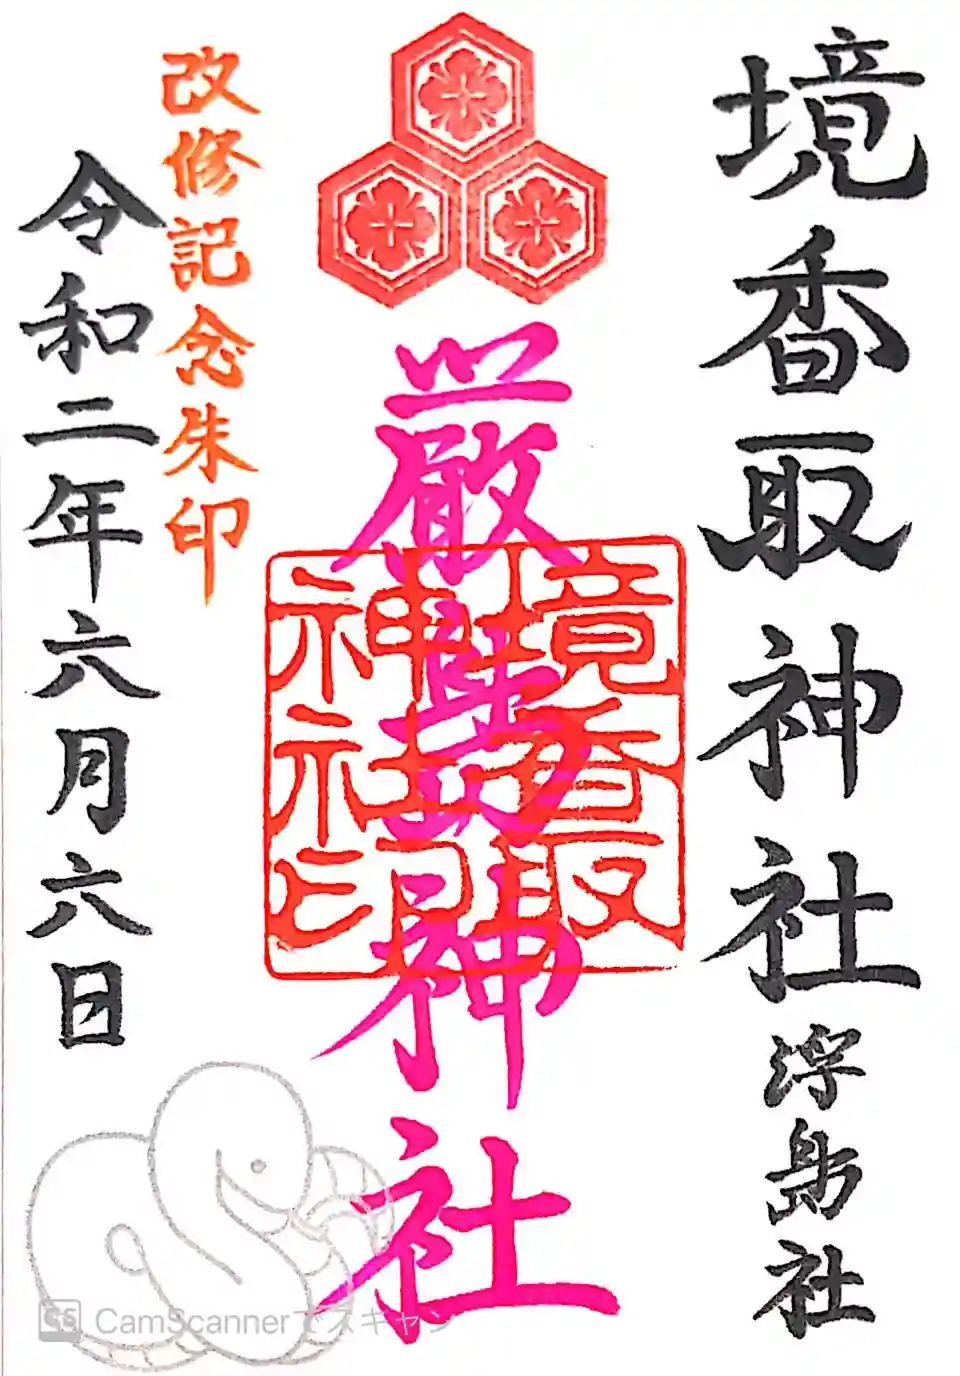 境香取神社 浮島社
厳島神社
境香取
神社印
改修記念朱印
令和二年六月六日
CS CamScannerでスキャン